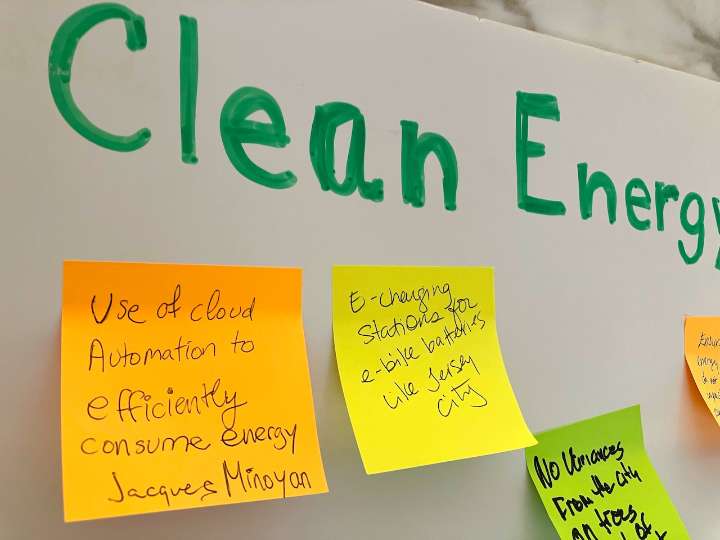 Clean Energy
Use of cloud
Automation to
efficiently
consume energy
Jacques Minoyan
E-charging
Stations for
e-bike batteries
Like Jersey
City
No Variances
From the city
on trees
of